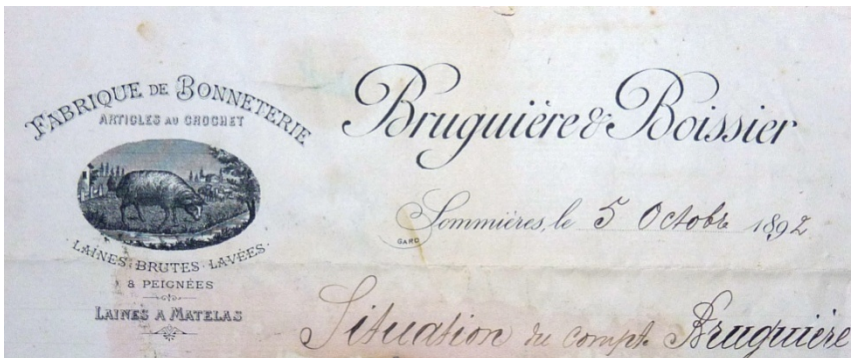 FABRIQUE DE BONNETERIE
ARTICLES AU CROCHET
LAINES BRUTES LAVÉES
& PEIGNÉES
LAINES A MATELAS
Bruguière & Boissier
Sommières, le 5 Octobre 1892
GARD
Situation du compte Bruguière